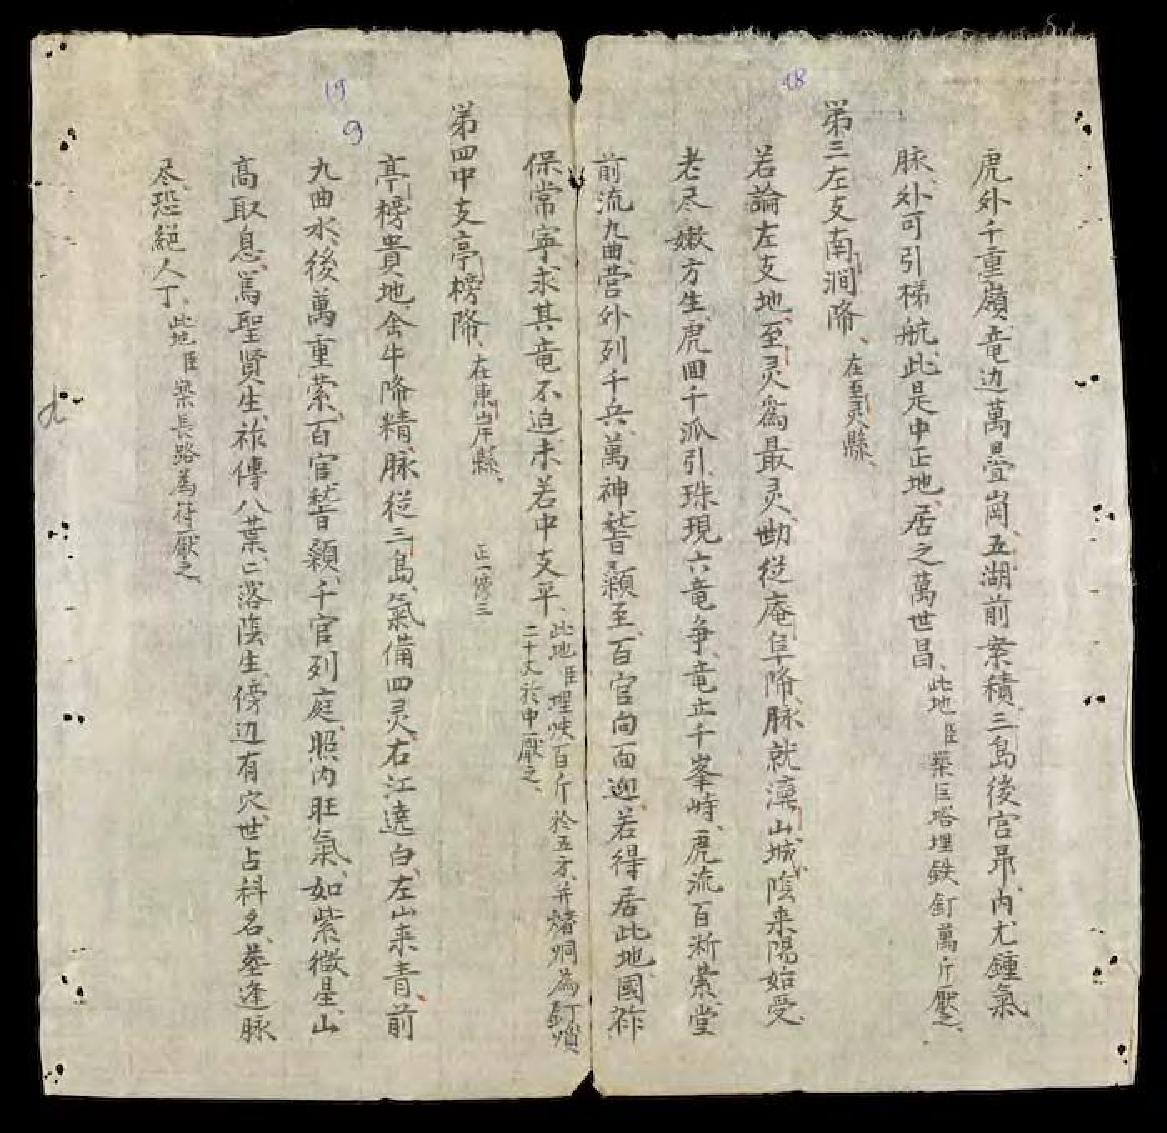 48
虎外千重嶺竜边萬疊崗五湖前案積三島後宫昂内尤鍾氣
脉外可引梯航此是中正地居之萬世昌此地臣築巨塔埋鉄釘萬斤壓之
第三左支南澗隆在至灵縣
若論左支地至灵為最灵勘從庵阜降脉就漠山城陰来陽始受
老尽嫩方生虎囬千派引珠現六竜争竜止千峯峙虎流百淅縈堂
前流九曲营外列千兵萬神嵇顙至百官向面迎若得居此地國祚
19
9
保常寕求其竜不迫未若中支平此地臣埋
百斤於五方并
為釘
二十丈於中壓之
第四中支亭榜隆在東岸縣
正一
三
亭榜貴地金牛降精脉從三島氣備四灵右江遶白左山来青前
九曲水後萬重縈百官嵇顙千官列庭照内旺氣如紫微星山
高取息篤聖賢生祚傳八葉二落陰生傍边有穴世占科名墓逢脉
尽恐絕人丁此地臣築長路為符壓之